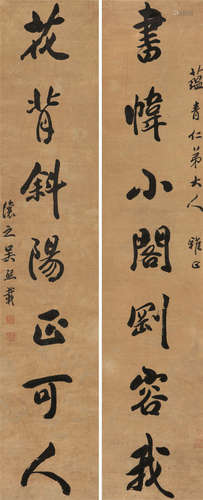 蕴青仁弟大人雅正
書幃小閣剛容我
花背斜陽正可人
讓之吳熙載